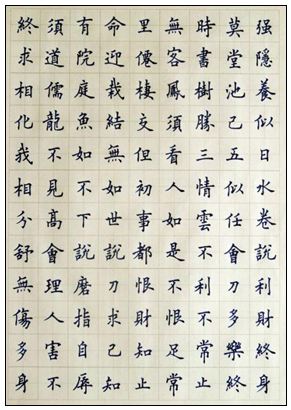 終須有命里無時莫强
求道院迎僊客書堂隱
相儒庭栽棲鳳樹池養
化龍魚結交須勝己似
我不如無但看三五日
相見不如初人情似水
分高下世事如雲任卷
舒會說說都是不會說
無理磨刀恨不利刀利
傷人指求財恨不多財
多害自己知足常樂終
身不辱知止常止終身